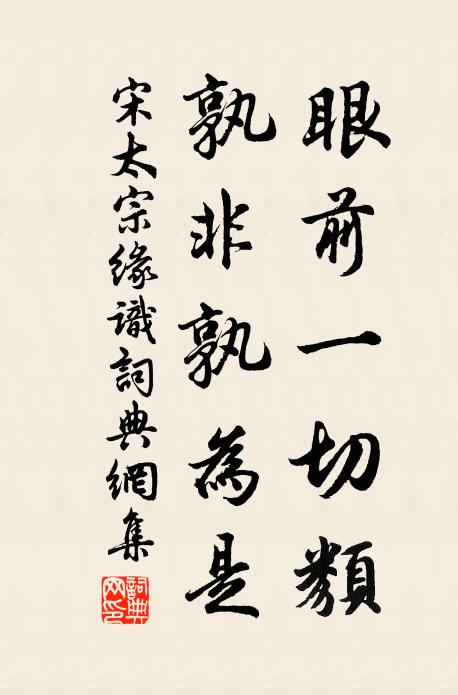 眼前一切類
孰非孰為是
宋太宗緣識詞典網集
詞典網印